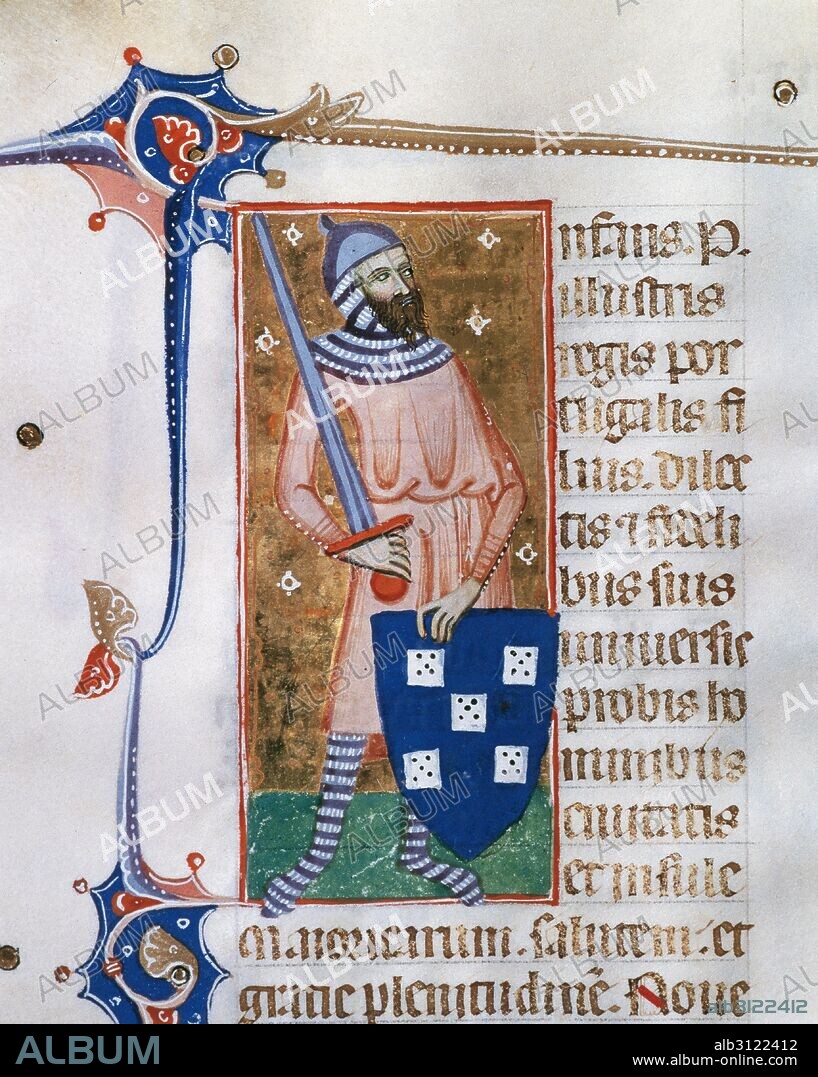 nfans. P.
illustris
regis por
tugalis fi
lius. dilec
tis ⁊ fideli
bus suis
universis
probis ho
minibus
civitatis
et insule
maioricarum. salutem. et
gracie plenitudinē. Nove
ALBUM
alb3122412
alb3122412
www.album-online.com